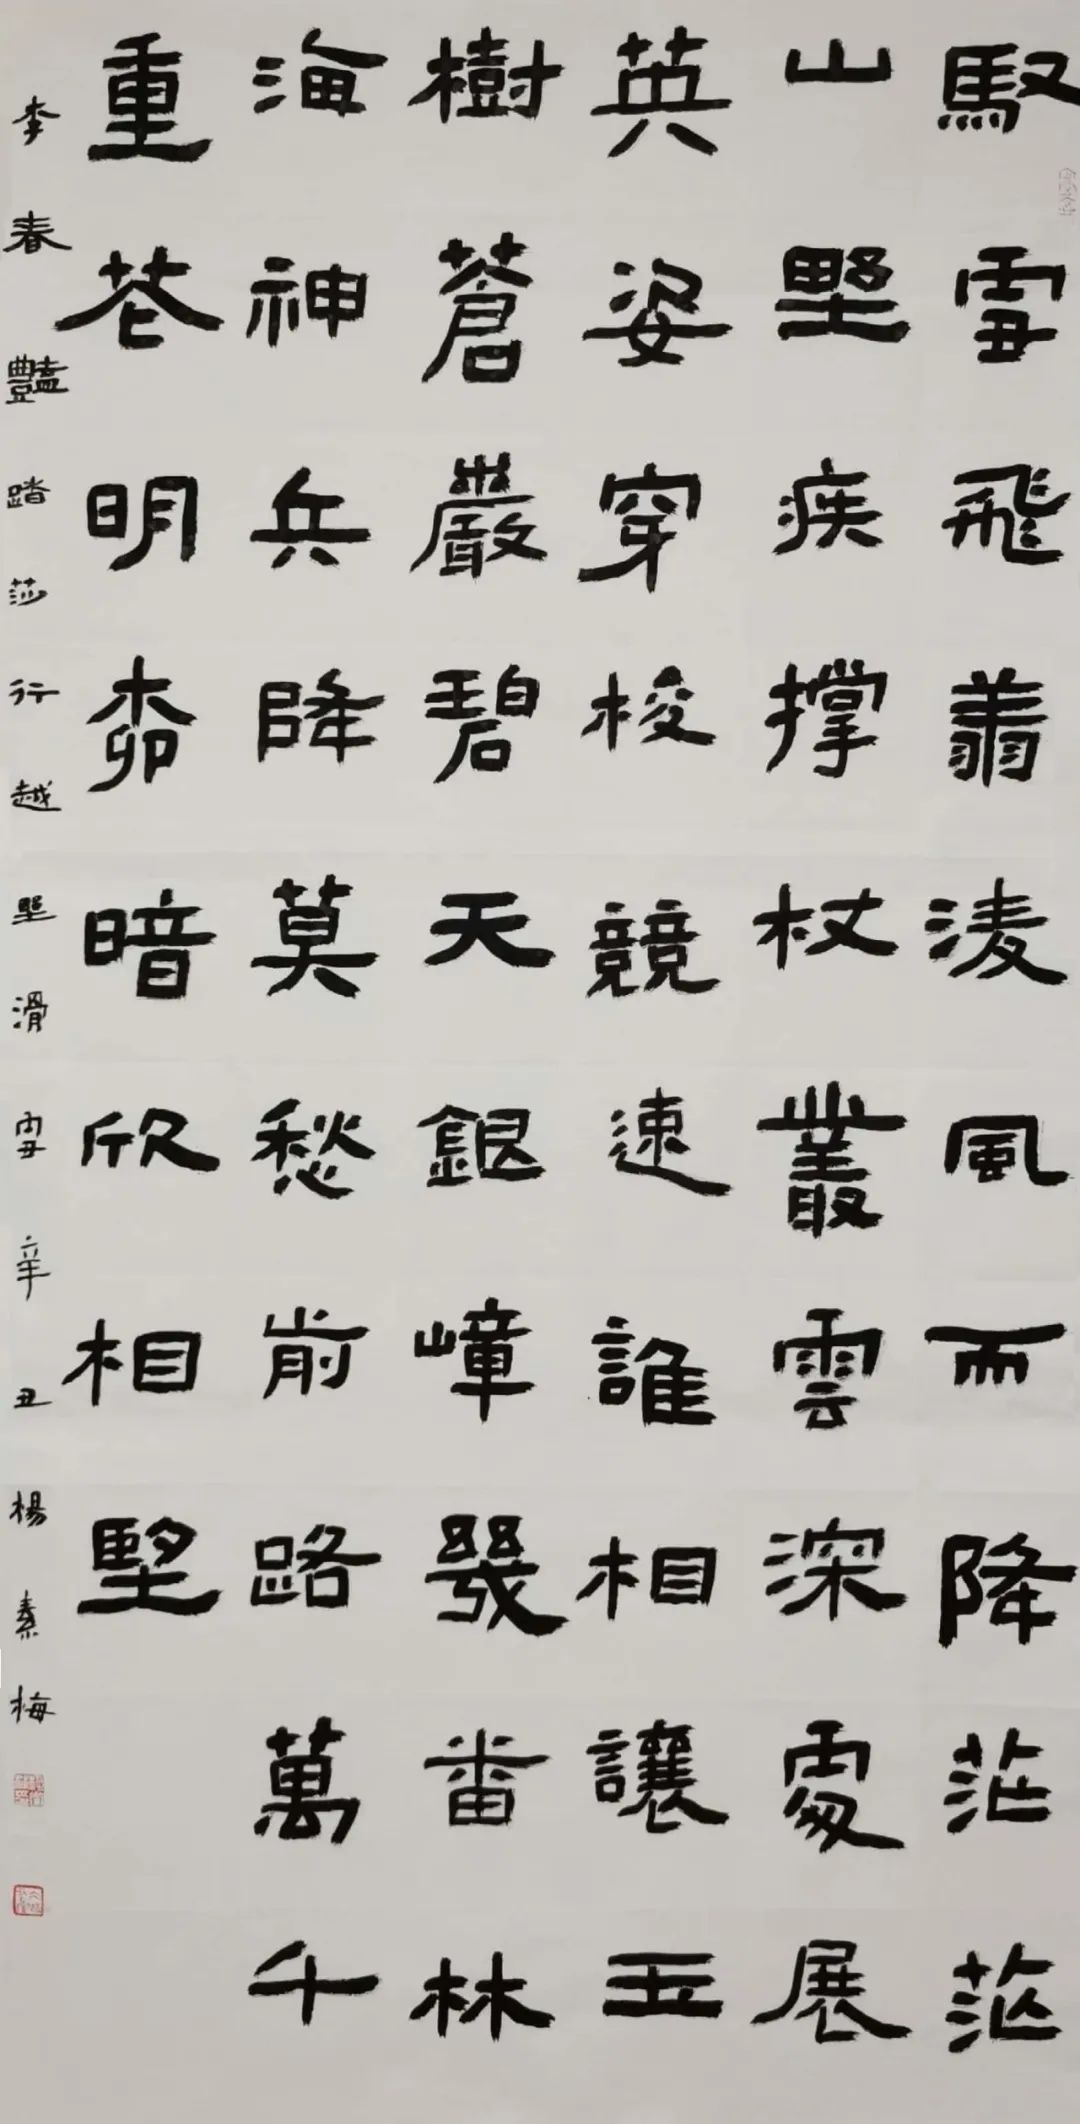 馭雪飛翔淩風而降茫茫
山野疾撑杖叢雲深處展
英姿穿梭競速誰相讓玉
樹蒼巖碧天銀嶂幾番林
海神兵降莫愁前路萬千
重花明柳暗欣相望
李春豔踏莎行越野滑雪辛丑楊素梅